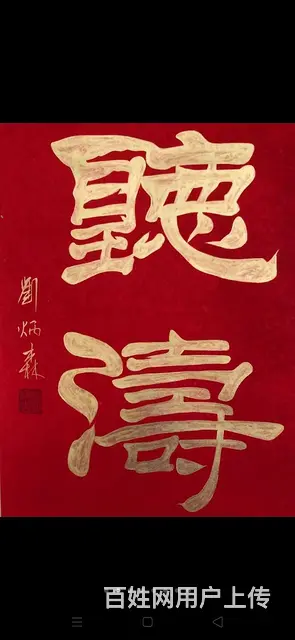 聽濤
劉炳森
百姓网用户上传